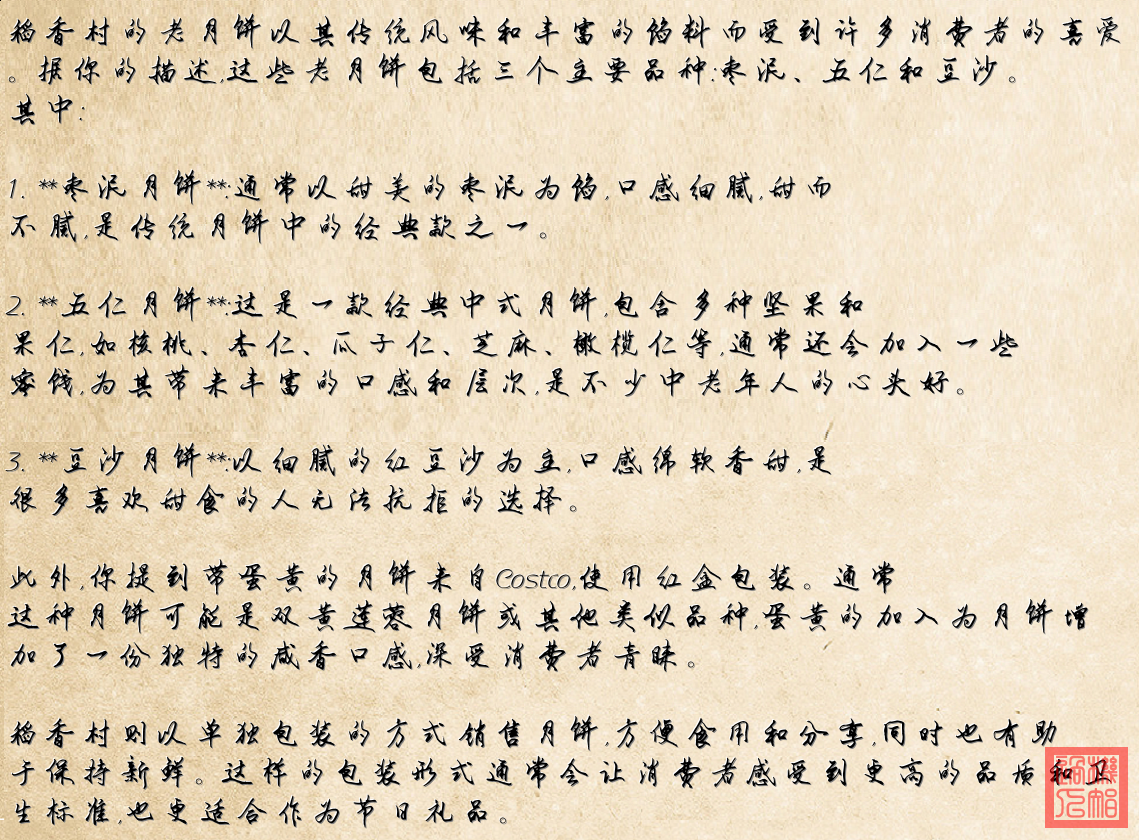 稻香村的老月饼以其传统风味和丰富的馅料而受到许多消费者的喜爱
。据你的描述,这些老月饼包括三个主要品种:枣泥、五仁和豆沙。
其中:
1. **枣泥月饼**:通常以甜美的枣泥为馅,口感细腻,甜而
不腻,是传统月饼中的经典款之一。
2. **五仁月饼**:这是一款经典中式月饼,包含多种坚果和
果仁,如核桃、杏仁、瓜子仁、芝麻、橄榄仁等,通常还会加入一些
蜜饯,为其带来丰富的口感和层次,是不少中老年人的心头好。
3. **豆沙月饼**:以细腻的红豆沙为主,口感绵软香甜,是
很多喜欢甜食的人无法抗拒的选择。
此外,你提到带蛋黄的月饼来自Costco,使用红盒包装。通常
这种月饼可能是双黄莲蓉月饼或其他类似品种,蛋黄的加入为月饼增
加了一份独特的咸香口感,深受消费者青睐。
稻香村则以单独包装的方式销售月饼,方便食用和分享,同时也有助
于保持新鲜。这样的包装形式通常会让消费者感受到更高的品质和卫
生标准,也更适合作为节日礼品。